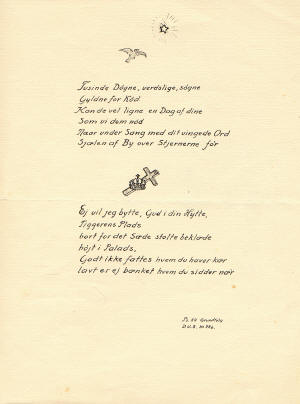 Tusinde Dögne, verdslige, sögne
Gyldne for Kód
Kan de vel ligne en Dag af dine
Som vi dem nód
Naar under Sang med dit vingede Ord
Sjælen af By over Stjernerne fór
Ej vil jeg bytte, Gud i din Hytte,
Tiggerens Plads
bort for det Sæde stolte beklæde
höjt i Palads,
Godt ikke fattes hvem du haver kær
lavt er ej bænket hvem du sidder nær
Ps. 84 Grundtvig
D.U.S.